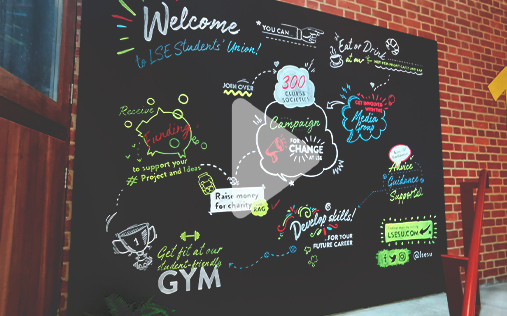 Welcome
to LSE Students' Union!
* YOU CAN
Eat or Drink
at our
JOIN OVER
300
CLUBS &
SOCIETIES
GET INVOLVED
WITH OUR
Media
Group
Receive
Funding
to support your
# Project and Ideas
Campaign
FOR
CHANGE
AT LSE
Advice
Guidance
Support
Raise money
for charity
RAG
Develop skills!
FOR YOUR
FUTURE CAREER
Get fit at our
student-friendly
GYM
LSESU.COM
@lsesu